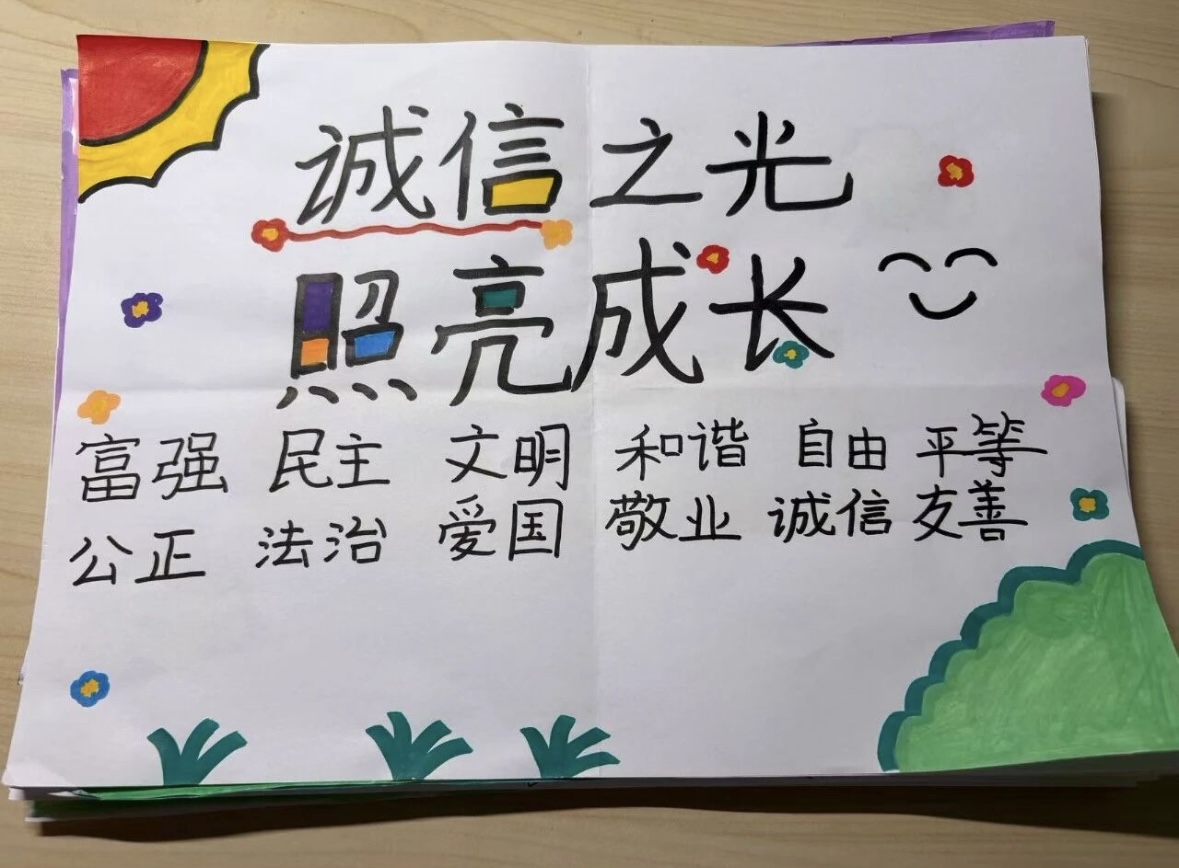 诚信之光
照亮成长
富强 民主 文明 和谐 自由 平等
公正 法治 爱国 敬业 诚信 友善